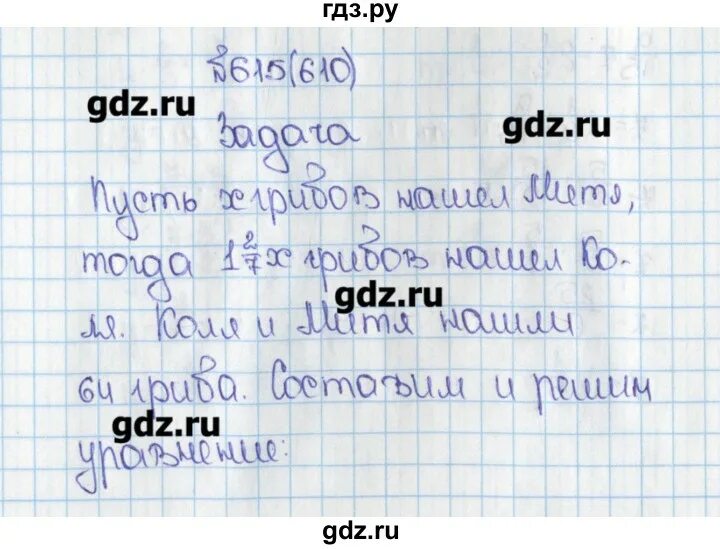 гдз.ру
№615(610)
gdz.ru
Задача
gdz.ru
Пусть х грибов нашел Митя,
тогда 1 2/7 х грибов нашел Ко-
gdz.ru
ля. Коля и Митя нашли
64 гриба. Составим и решим
gdz.ru
уравнение:
gdz.ru